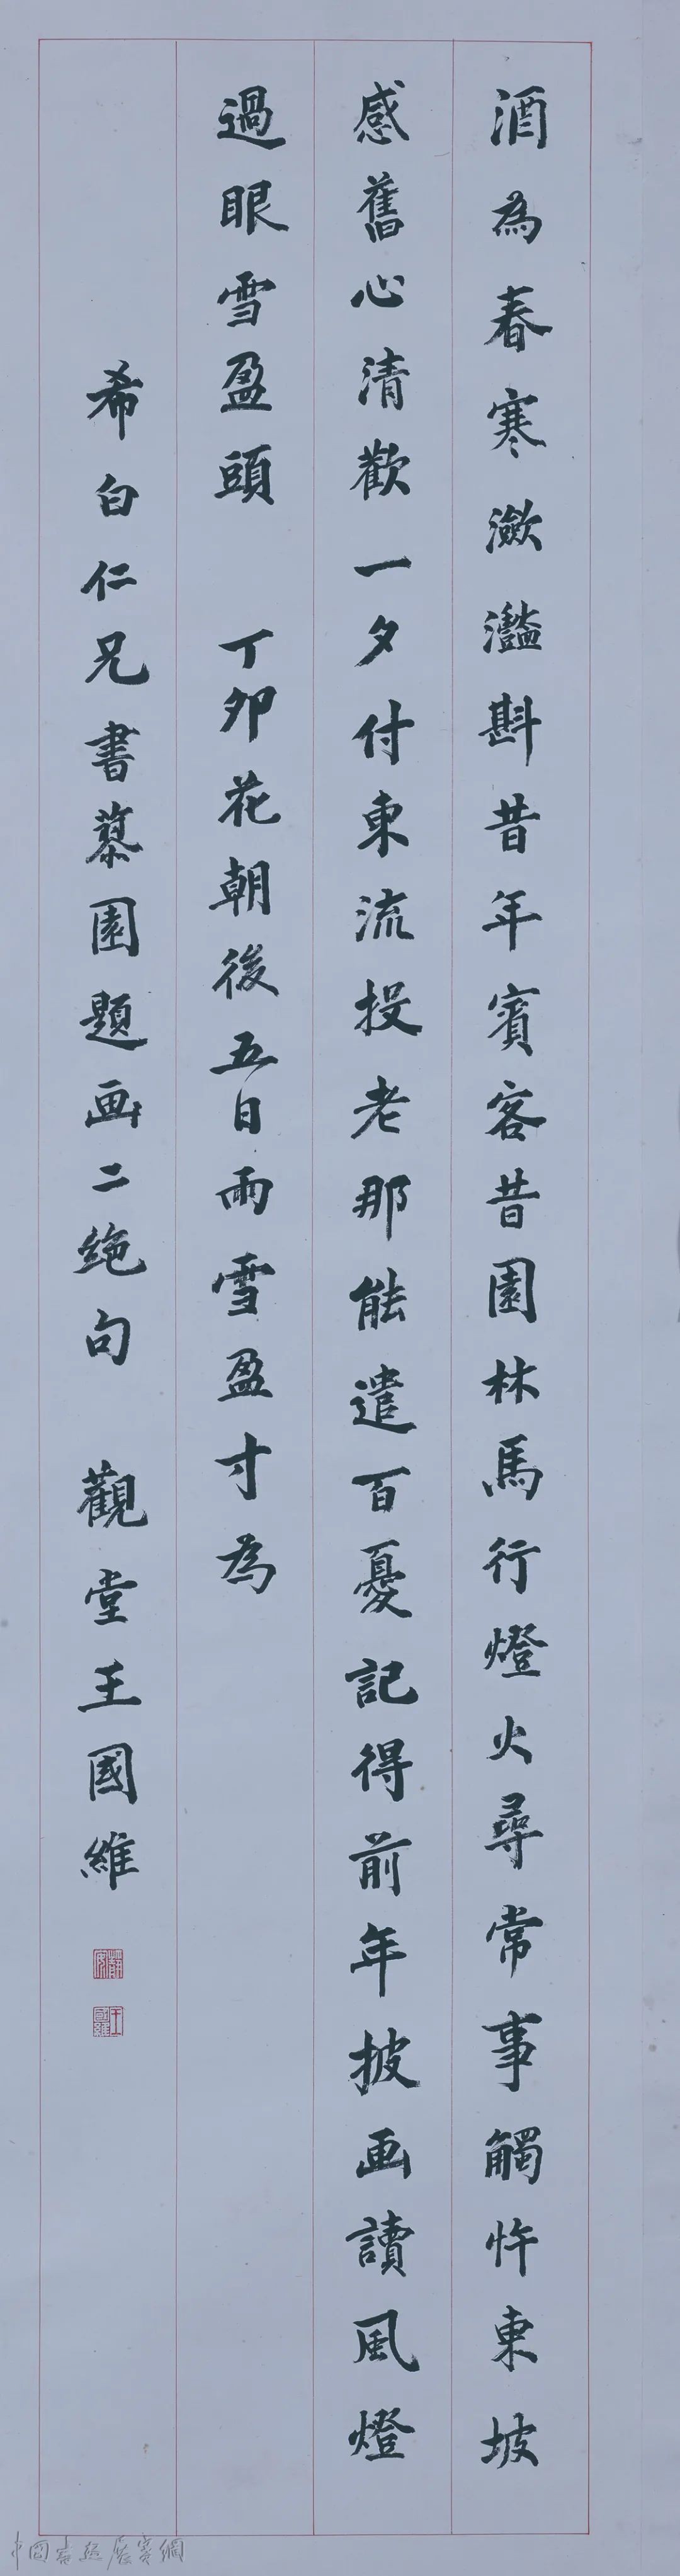 酒為春寒潋灩斟昔年賓客昔園林馬行燈火尋常事觸忤東坡
感舊心清歡一夕付東流投老那能遣百憂記得前年披画讀風燈
過眼雪盈頭 丁卯花朝後五日雨雪盈寸為
希白仁兄書慕園題画二绝句 觀堂王國維
靜安
王國維
中国书法展赛網